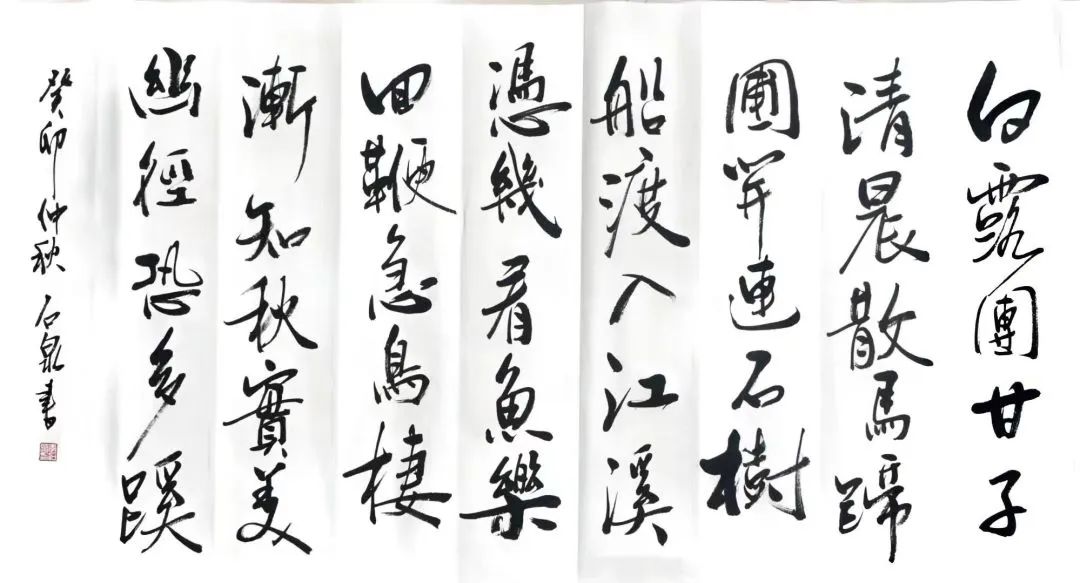 白露團甘子
清晨散馬蹄
圃開連石樹
船渡入江溪
憑幾看魚樂
回鞭急鳥棲
漸知秋實美
幽徑恐多蹊
癸卯仲秋石泉書